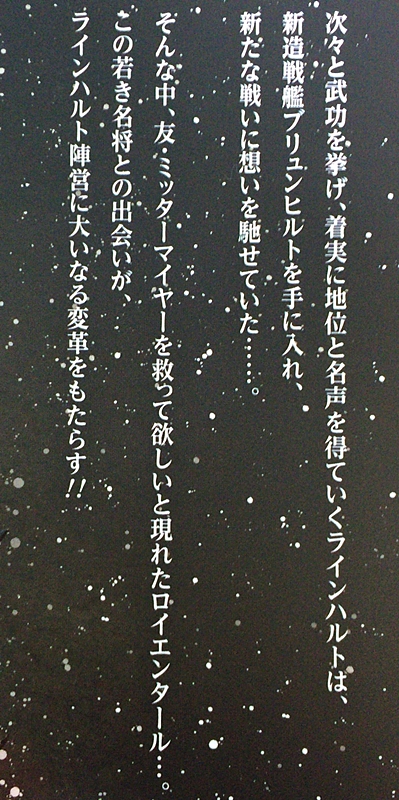 次々と武功を挙げ、着実に地位と名声を得ていくラインハルトは、
新造戦艦ブリュンヒルトを手に入れ、
新たな戦いに想いを馳せていた……。
そんな中、友・ミッターマイヤーを救って欲しいと現れたロイエンタール…。
この若き名将との出会いが、
ラインハルト陣営に大いなる変革をもたらす!!